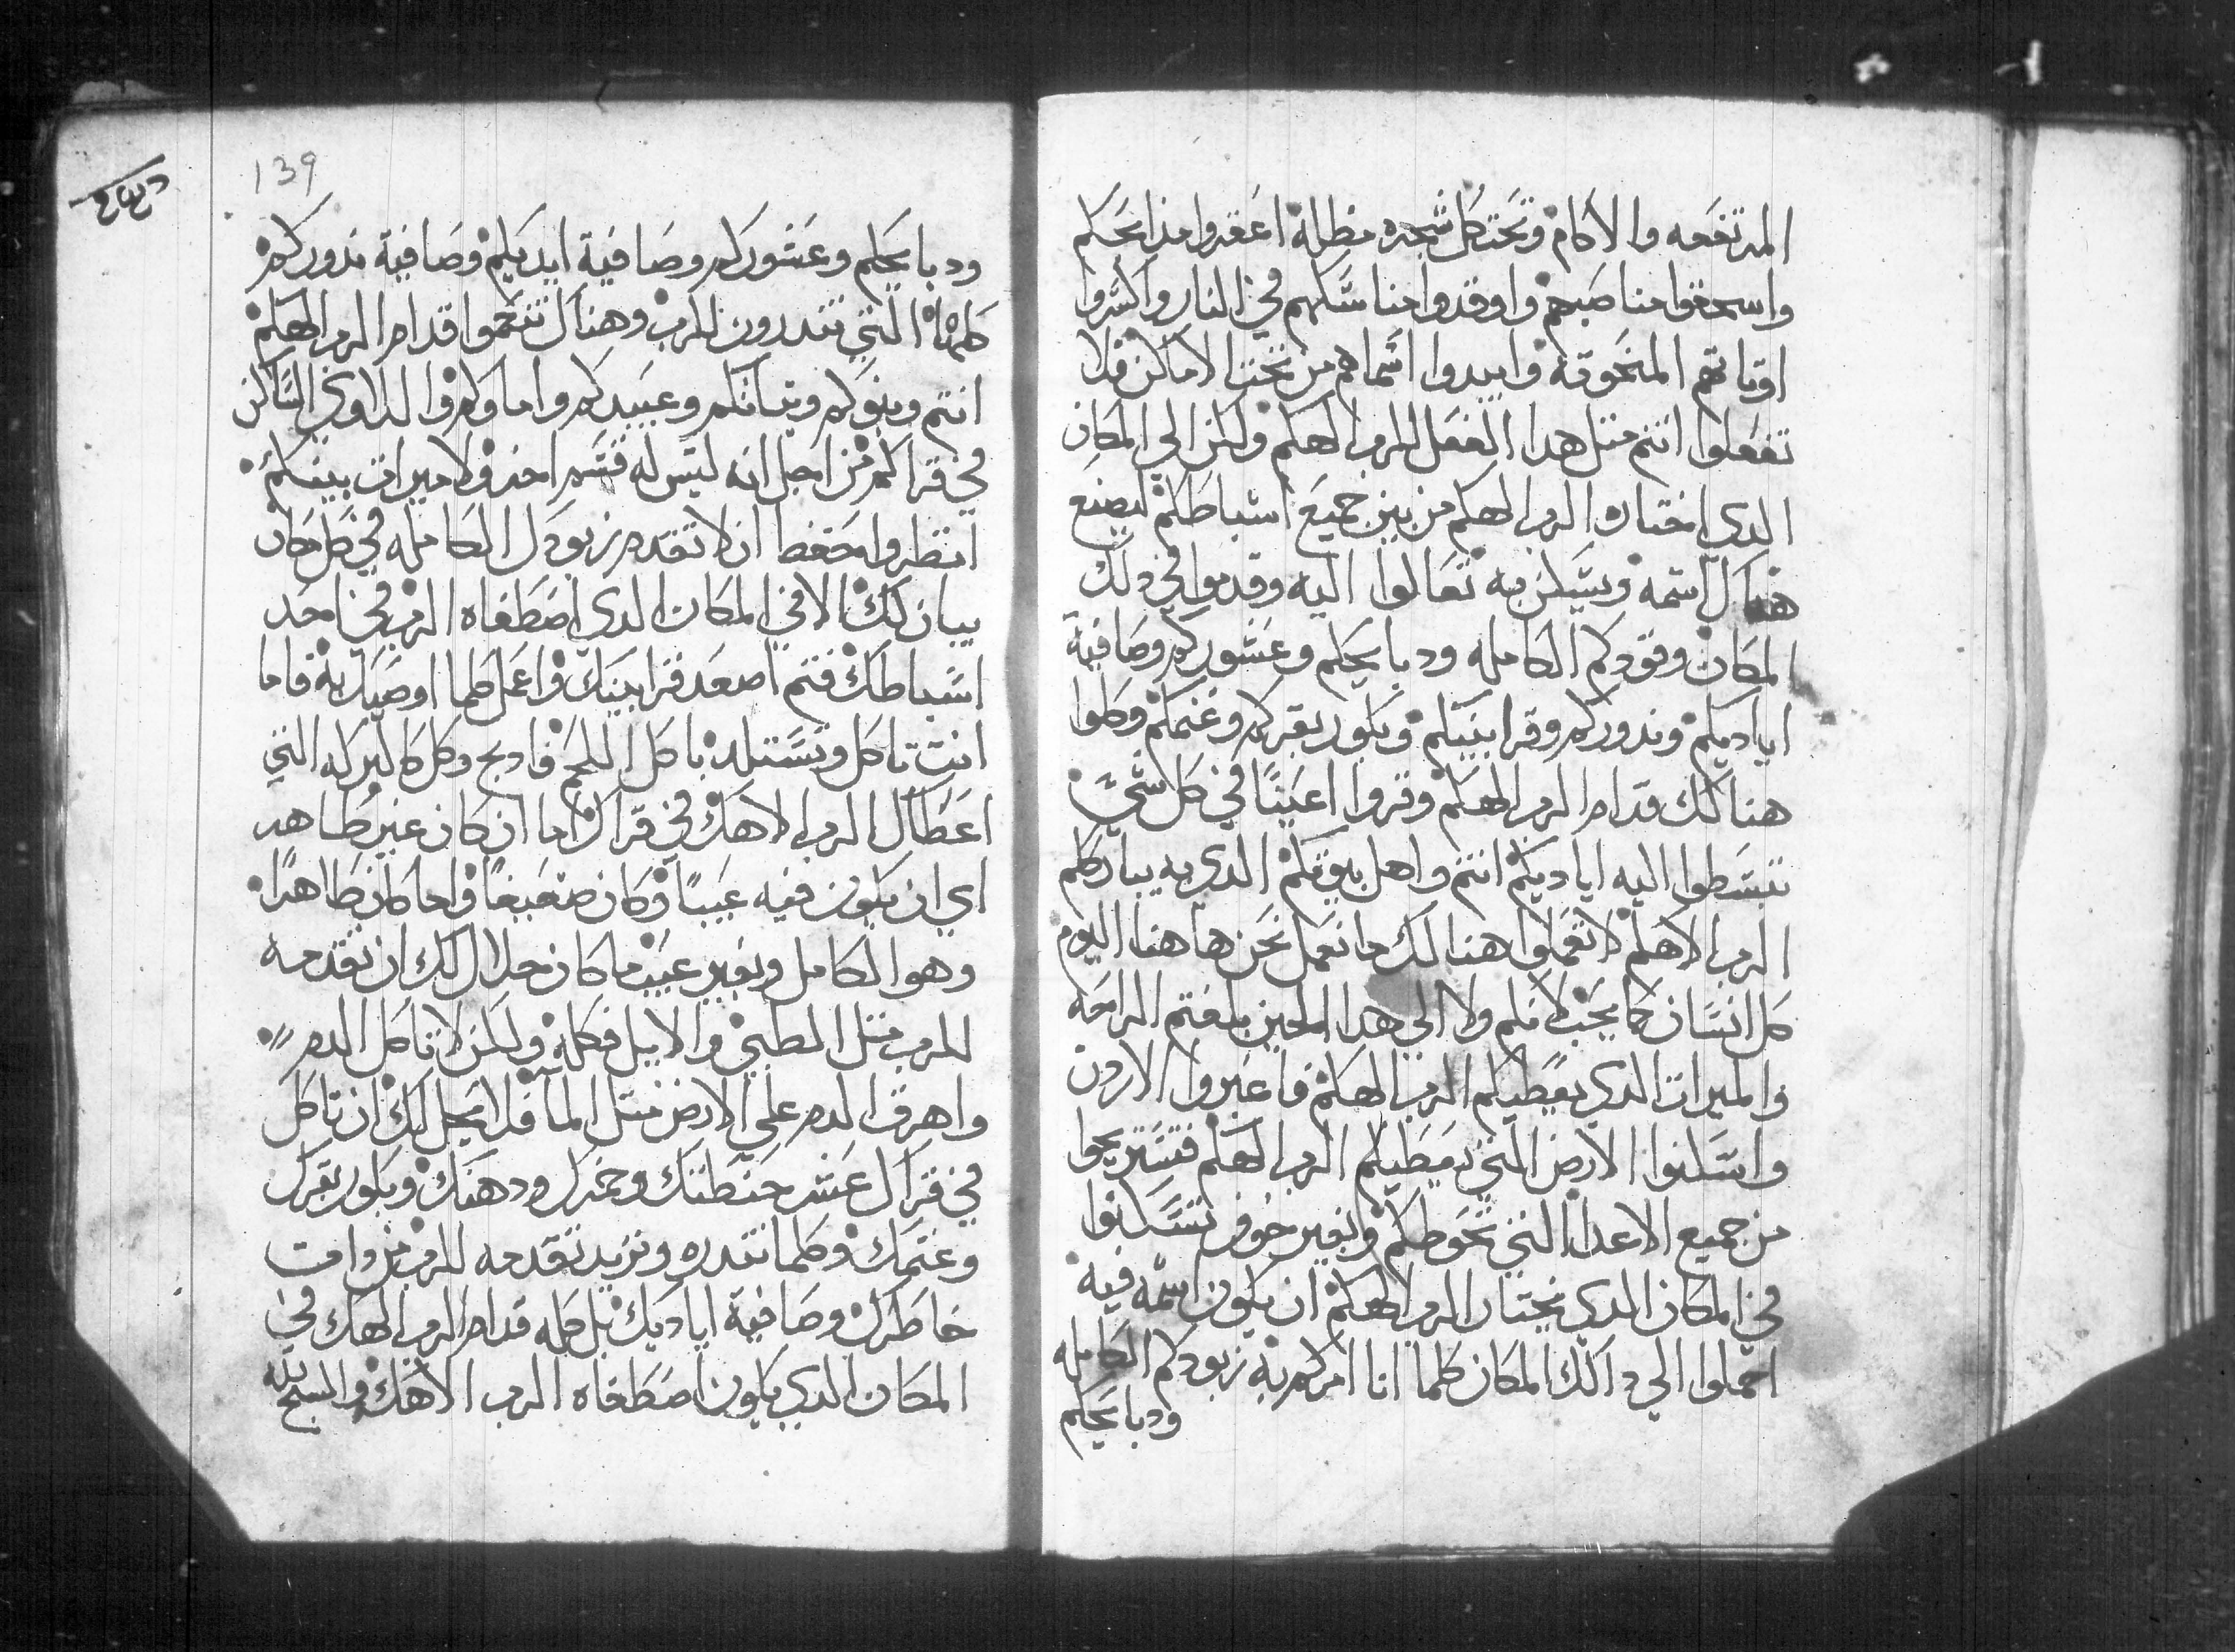 المرتفعه والاكام وتحت كل شجره مظلله اعقروا مدابحكم
واسحقوا مناصبهم واوقدوا مناسكهم في النار واكسروا
اوتانهم المنحوته وابيدوا اسماهم من تحت الاماكن فلا
تفعلوا انتم متل هدا الفعل للرب الهكم ولكن الي المكان
الدي اختاره الرب الهكم من بين جميع اسباطكم ليصنع
هناك اسمه ويسكن فيه تعالوا اليه وقدموا في دلك
المكان وقودكم الكامله ودبايحكم وعشوركم وصافية
اياديكم وندوركم وقرابينكم وبكور بقركم وغنمكم وكلوا
هنالك قدام الرب الهكم وقروا اعينًا في كل شيٍ
تبسطوا اليه اياديكم انتم واهل بيوتكم الدي به يبارككم
الرب الاهكم لا تعملوا هنالك ما نعمل نحن هاهنا اليوم
كل انسان كما يجب لانكم ولا الي هدا الحين بلغتم الراحه
والميرات الدي يعطيكم الرب الهكم فاعبروا الاردن
واسكنوا الارض التي يعطيكم الرب الهكم فتستريحوا
من جميع الاعدا التي تحوطكم وبغير خوف تسكنوا
في المكان الدي يختار الرب الهكم ان يكون اسمه فيه
احملوا الي دالك المكان كلما انا امركم به زبودكم الكامله
ودبايحكم
139
ودبايحكم وعشوركم وصافية ايديكم وصافية ندوركم
كلها التي تندرون للرب وهناك تنعموا قدام الرب الهكم
انتم وبنوكم وبناتكم وعبيدكم واماوكم والداوي الساكن
في قراكم من اجل انه ليس له قسم اخد ولا ميرات بينكم
انتظر واحتفظ ان لا تقدم زبودك الكامله في كل مكان
يبان لك الا في المكان الدي اصطفاه الرب في احد
اسباطك فتم اصعد قرابينك واعمل كلما اوصيك به فاما
انت تاكل وتستلد باكل اللحم فادبح وكل كالبركه التي
اعطاك الرب الاهك في قراك اما ان كان غير طاهر
اي ان يكون فيه عيبًا وكان ضعيفًا واما كان طاهرًا
وهو الكامل وبغير عيب ما كان حلال لك ان تقدمه
للرب متل الظبي والايل فكله ولكن لا تاكل الدم
واهرق الدم علي الارض متل المآ فلا يحل لك ان تاكل
في قراك عشر حنطتك وخمرك ودهنك وبكور بقرك
وغنمك وكلما تندره وتريد تقدمه للرب من دات
خاطرك وصافية اياديك بل كله قدام الرب الهك في
المكان الدي يكون اصطفاه الرب الاهك والسبح لله